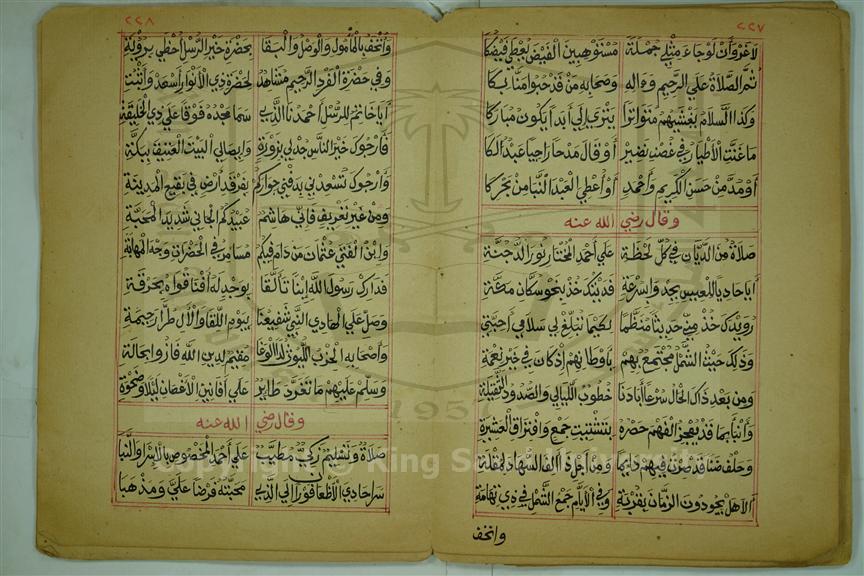 ٢٢٧
لاغروأن لوجاء مثلي جملة مستوهبين الفيض يعطي فيضكا
ثم الصلاة علي الرحيم وءاله وصحابه من قد حبوا منا بكا
وكذا السلام يغشيهم متواترا يتري إلي أبدا يكون مباركا
ما غنت الأطيار في غصن نضير أو قال مدحا راجيا عبد الكا
أو مد من حسن الكريم وأحمد أو أعطي العبد النبا من بحركا
وقال رضي الله عنه
صلاة من الديان في كل لحظة علي أحمد المختار نور الدجنة
أيا حاديا للعيس بجد واسرعة فديتك خذ بي نحو سكان مكة
رويدك خذ مني حديثا منظما بكيما تبلغ بي سلامي أحبتي
وذلك حيث الشمل مجتمع بهم بأوطانهم إذ كان في خير نعمة
ومن بعد ذاك الحال سرعا أبادنا خطوب الليالي والصدود الثقيلة
وأنبأ بما قد يعجز الفهم حصره بتشتيت جمع وافتراق العشيرة
وخلف صنا قد صرت فيهم دايما ومن أجل ذا ألف السهاد لمقلة
ألا هل يجودون الزمان بقربة وفي الأيام جمع الشمل في ذي تهامة
واتخف
٢٢٨
وأتخف بالمأمول والوصل والبقا بحضرة خير الرسل أحظي برؤية
وفي حضرة الفرد الرحيم مشاهد لحضرة ذي الأنوار أسعد وأثبت
أيا خاتم للرسل أحمدنا الذي سما مجده فوقا علي ذي الخليقة
فأرجوك خير الناس جد لي بزورة وإيصالي البيت العتيق ببكة
وأرجوك تسعدني بدفني جواركم بفرقد أرض في بقيع المدينة
ومن غير تعريف فإني هاشم عبيدكم الجاني شديد المحبة
وابن الفتي عثمان من دام فيكم مسامر في الحضرات وجه المهابة
فدارك رسول الله إبنا تألقا بوجد له أفنا قواه بحرقة
وصل علي الهادي النبي شفيعنا بيوم اللقا والأل طرا رحيمة
وأصحابه الحزب الليوث لدا الوغا مقيم لدين الله فازوا بحالة
وسلم عليهم ما تغرد طاير علي أفانين الأغصان ليلا وضحوة
وقال رضي الله عنه
صلاة وتسليم زكي مطيب علي أحمد المخصوص بالإسرا والنبا
سر احادي الأظعان فورا إلي الذي محبته فرضا علي ومذهبا
copyright © King Saud University
1957